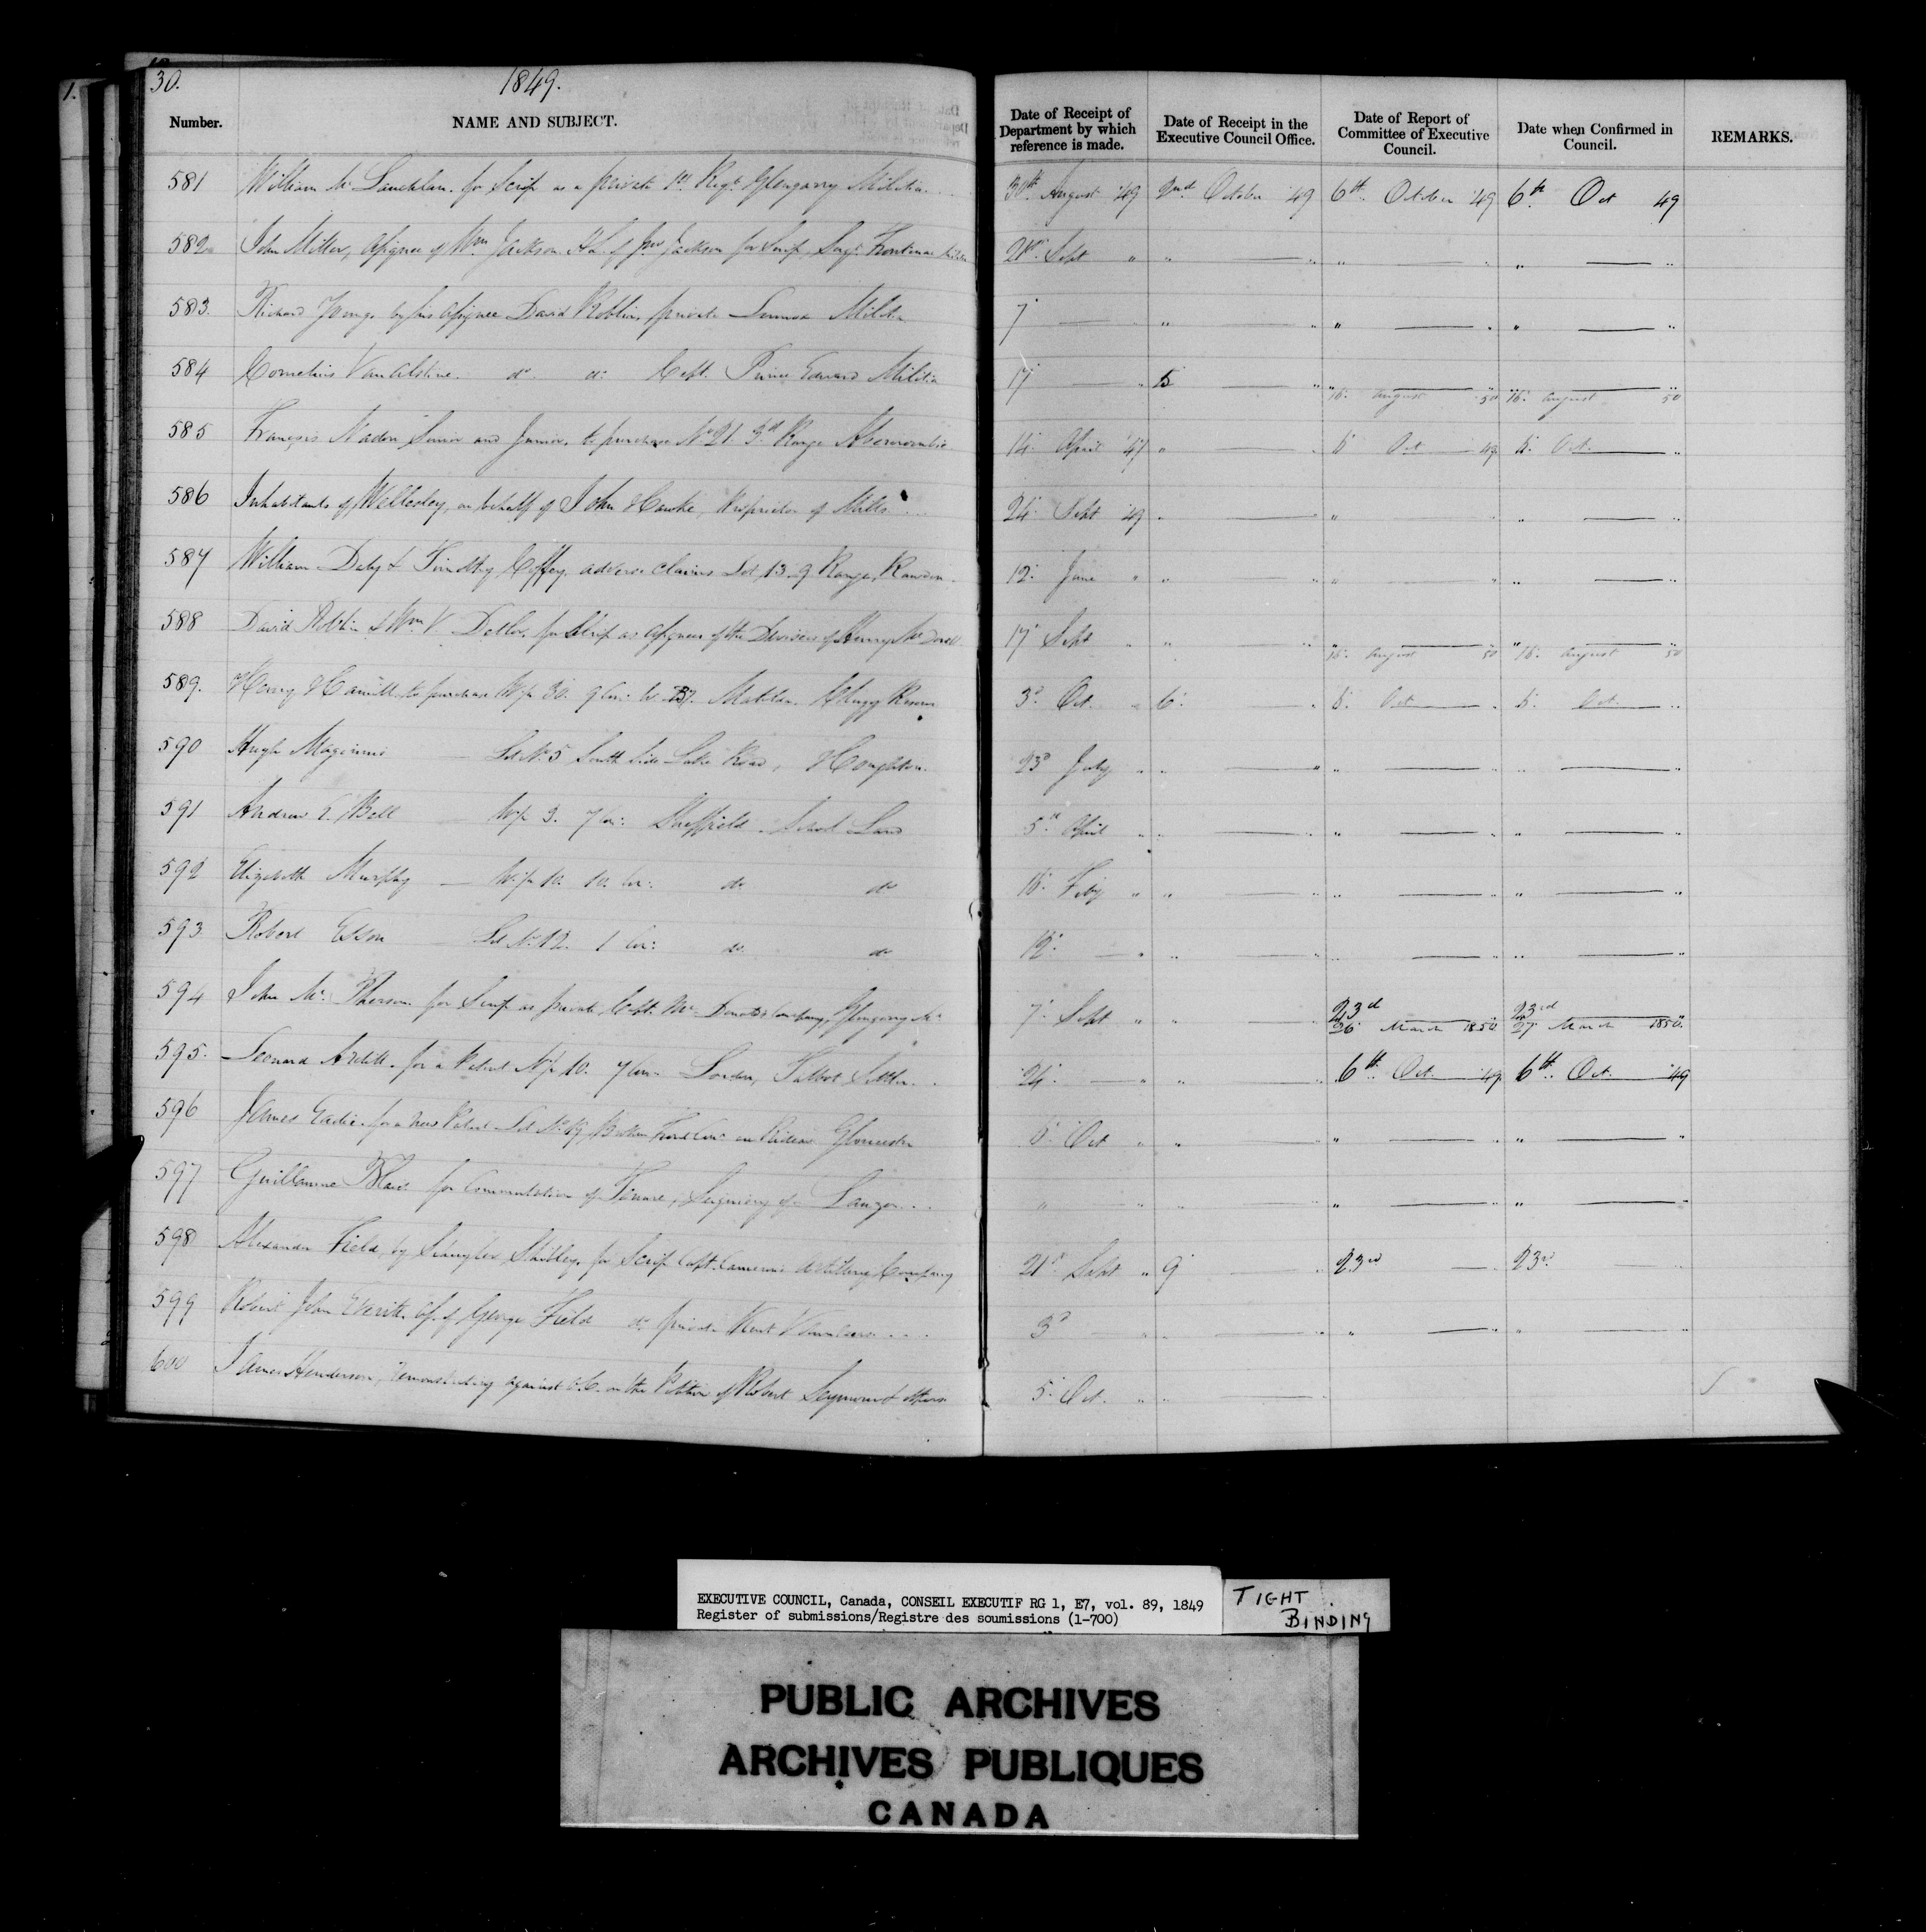 30.
1849.
Number.
NAME AND SUBJECT.
Date of Receipt of Department by which reference is made.
Date of Receipt in the Executive Council Office.
Date of Report of Committee of Executive Council.
Date when Confirmed in Council.
REMARKS.
581 William Mc Lauchlan. for Scrip as a private 1st Regt. Glengarry Militia. 30th August '49 2nd October '49 6th October '49 6th Oct 49
582 John Miller, Assignee of Wm. Jackson of Jackson for Scrip, Sergt. Frontenac Militia 21st Sept " " " " "
583. Richard Young by his Assignee David Roblin, private Lennox Militia 7 " " "
584 Cornelius VanAlstine. do do Capt. Prince Edward Militia 17 5 " 16. August 50 " 16. August 50
585 François Nadon Senior and Junior, to purchase No. 21. 3rd Range Abercrombie 14. April '47 " 5 Oct 49 5. Oct. "
586 Inhabitants of Wellesley, on behalf of John Hawke, Proprietor of Mills 24. Sept '49 " " "
587 William Daly & Timothy Coffey, adverse claims Lot 13. 9 Range, Rawdon. 12. June " " " "
588 David Roblin & Wm. V. Detlor, for Scrip as Assignees of the Devisees of Henry 17 Sept " " " 16. August 50 " 16. August 50
589. Henry to purchase W½ 30. 9 Con: Matilda. Clergy Reserve 3d Oct. " 6. 5. Oct. 5. Oct. "
590 Hugh Maginnis Lot No. 5 South Side Lake Road, Houghton. 23d July " " " "
591 Andrew T. Bell W½ 3. 7 Con: Sheffield School Land 5th April " " " "
592 Elizabeth Murphy W½ 10. 10. Con: do do 16. Feby " " " "
593 Robert Esson Lot No. 12. 1 Con: do do 12. " " " "
594 John Mc. Pherson for Scrip as private, Capt. Mc Donald's Company, Glengarry 7. Sept " " 23d 26. March 1850 23rd 27. March 1850.
595. Leonard Ardill. for a Patent N½ 10. 7 Con. London, Talbot Settlet. 24. " " 6th. Oct. '49 6th. Oct. '49
596 James Eadie. for a new Patent Lot No. 19 Broken Front Con. on Rideau Gloucester 5. Oct " " " "
597 Guillaume for Commutation of Tenure, Seigniory of Lauzon " " " "
598 Alexander Field, by for Scrip Capt. Cameron's Artillery Company 21st Sept " 9 23rd 23rd
599 Robert John Everitt. As. of George Field do private Kent Volunteers 3d " " " "
600 James Henderson, remonstrating against O.C. on the Petition of Robert Seymour & others 5. Oct. " "
EXECUTIVE COUNCIL, Canada, CONSEIL EXECUTIF RG 1, E7, vol. 89, 1849
Register of submissions/Registre des soumissions (1-700)
TIGHT
BINDING
PUBLIC ARCHIVES
ARCHIVES PUBLIQUES
CANADA